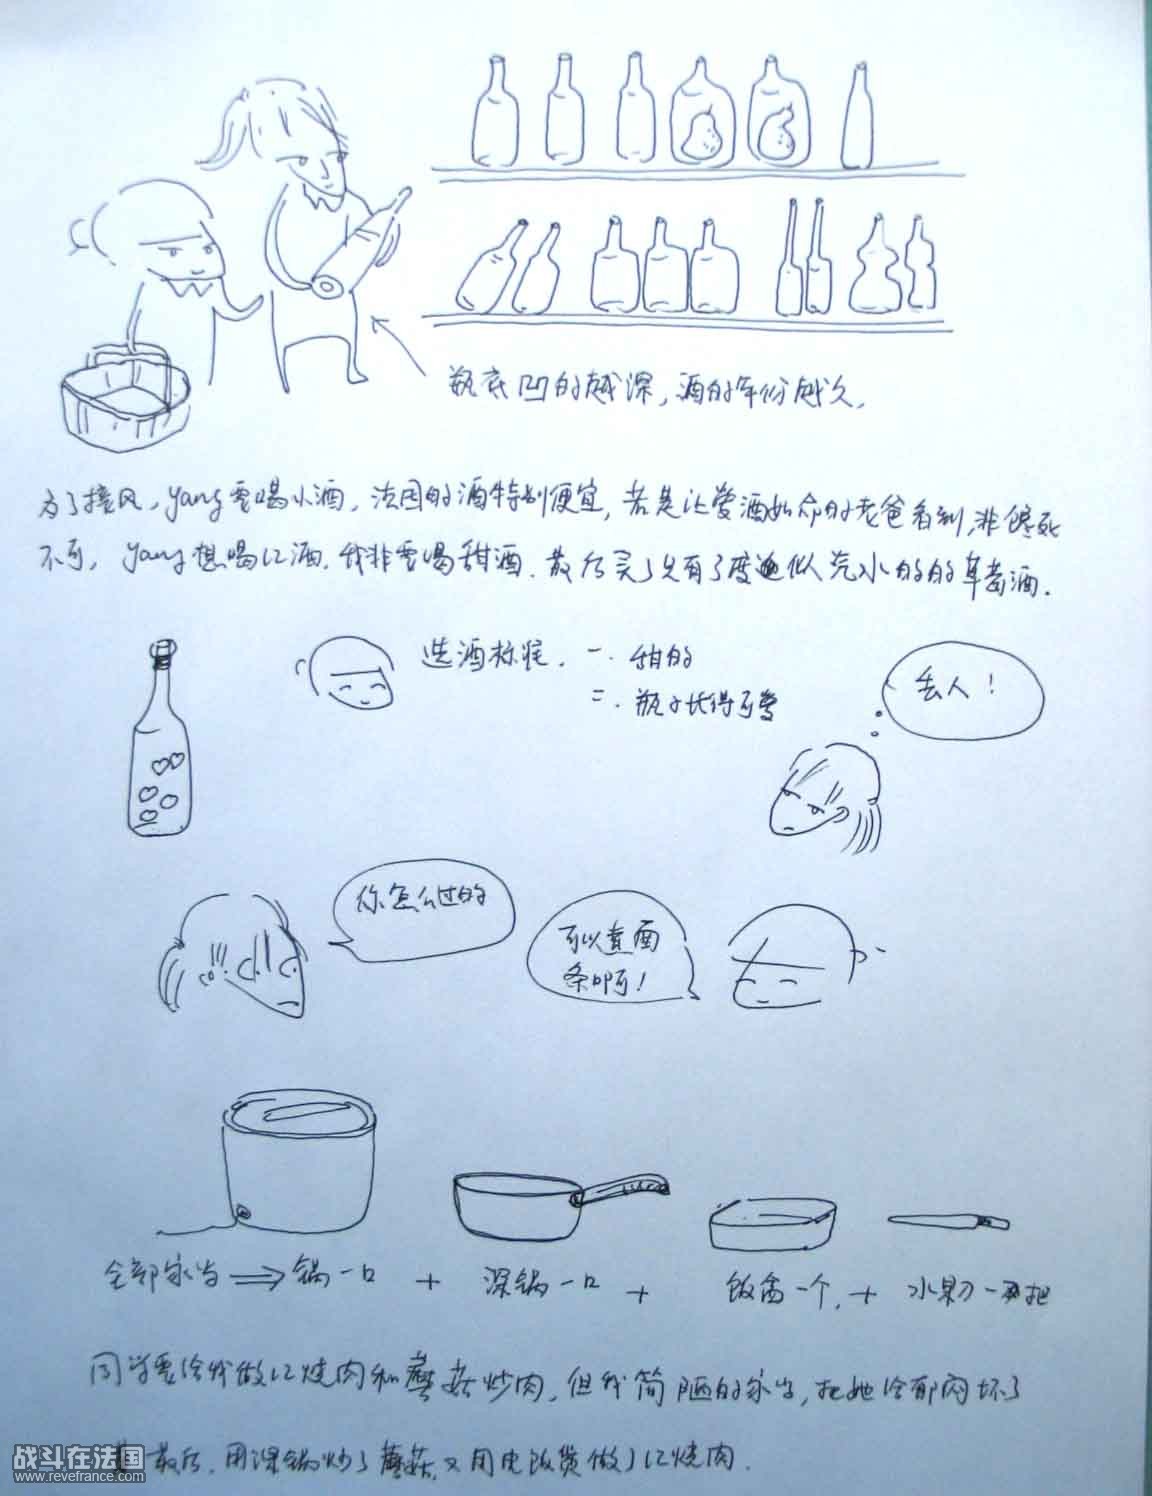 瓶底凹的越深，酒的年份越久.
为了接风，yang要喝小酒，法国的酒特别便宜，若是让爱酒如命的老爸看到，非馋死
不可，yang想喝红酒.我非要喝甜酒.最后买了只有3度近似汽水的的草莓酒.
选酒标准. 一. 甜的
二. 瓶子长得可爱
丢人！
你怎么过的
可以煮面
条啊！
全部家当 ⇒ 锅一口 + 深锅一口 + 饭盒一个. + 水果刀一把
同学要给我做红烧肉和蘑菇炒肉，但我简陋的家当，把她给郁闷坏了
最后.用深锅炒了蘑菇.又用电饭煲做了红烧肉.
战斗在法国
www.revefrance.com